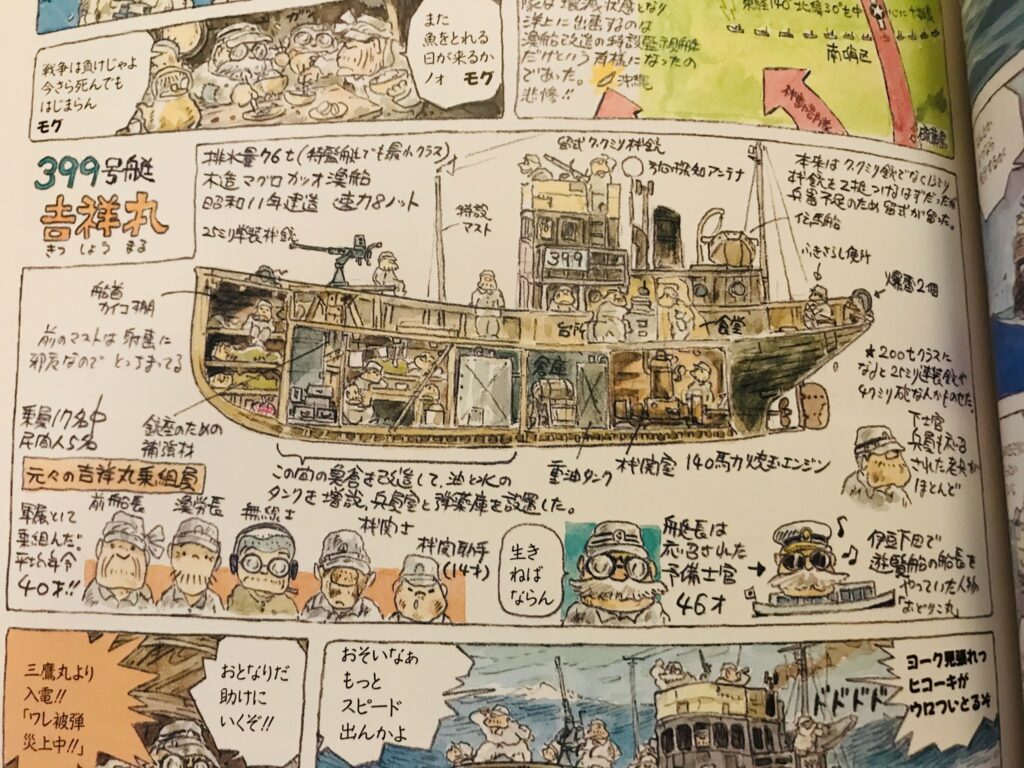 戦争は負けじゃよ
今さら死んでも
はじまらん
モグ
また
魚をとれる
日が来るか
ノォ モグ
洋上に出速するのは
漁船改造の特設監視艇
だけという有様になったの
であった。
悲惨!!
沖縄
南鳥
399号艇
吉祥丸
きっしょうまる
排水量96t(特監艇でも最小クラス)
木造マグロカツオ漁船
昭和11年建造 速力8ノット
25ミリ単装機銃
特設
マスト
留式7.7ミリ機銃
方向探知アンテナ
本来は7.7ミリ銃でなく13ミリ
機銃を2挺つけるはずだったが
兵器不足のため留式が習った。
伝馬船
ふきさらし便所
爆雷2個
399
船首
カイコ棚
前のマストは射撃に
邪魔なので とっちまってる
台所
食堂
倉庫
乗員17名中
民間人5名
銃座のための
補強材
重油タンク
機関室 140馬力焼玉エンジン
★200tクラスに
なると25ミリ連装銃や
下士官
兵員も応召
された老兵が
ほとんど
この間の魚倉を改造して、油と水の
タンクを増設、兵員室と弾薬庫を設置した。
元々の吉祥丸乗組員
軍属として
乗組んだ。
平均年令
40才!!
前船長
漁労長
無線士
機関士
機関助手
(14才)
生き
ねば
ならん
艇長は
応召された
予備士官
46才
伊豆下田で
遊覧船の船長を
やっていた人物
「おどりこ丸」
三鷹丸より
入電!!
「ワレ被弾
炎上中!!」
おとなりだ
助けに
いくぞ!!
おそいなぁ
もっと
スピード
出んかよ
ドドドドド
ヨーク見張れっ
ヒコーキが
ウロついとるぞ